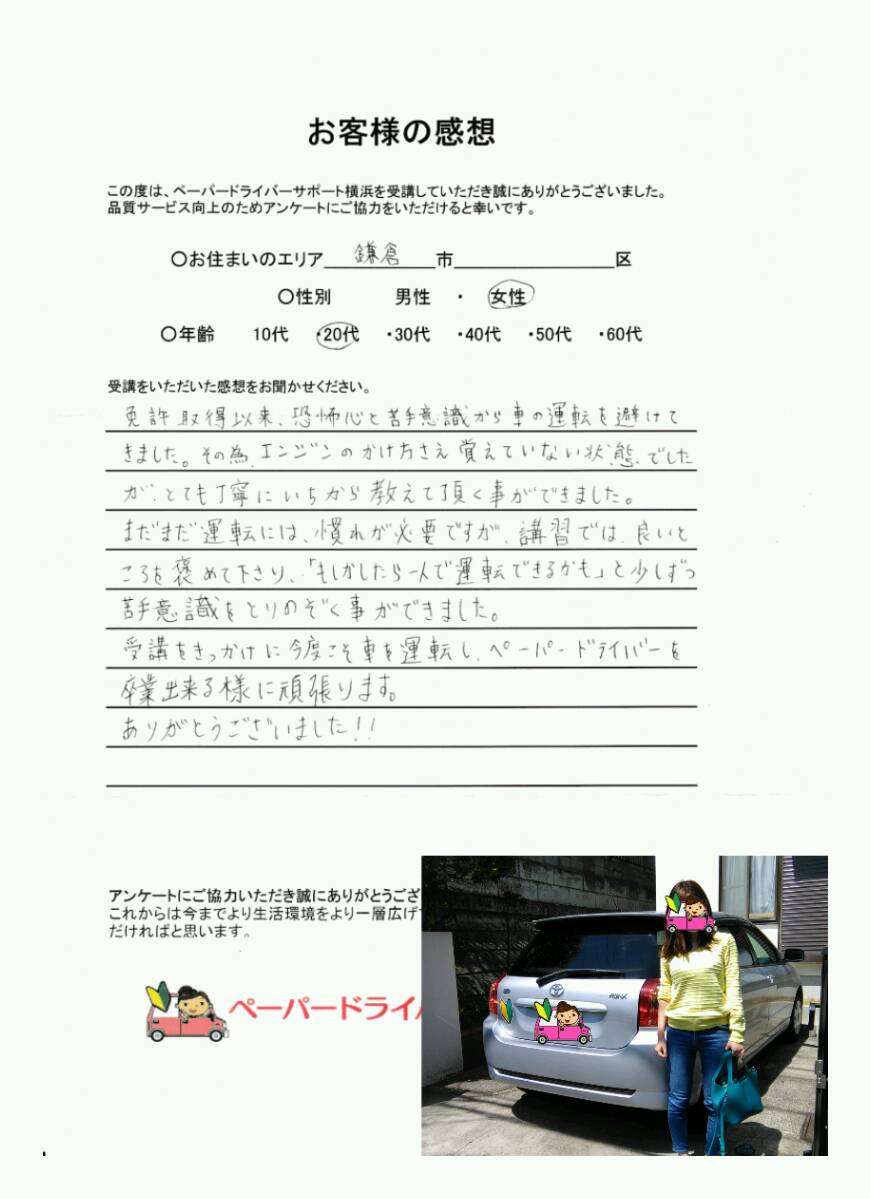 お客様の感想
この度は、ペーパードライバーサポート横浜を受講していただき誠にありがとうございました。
品質サービス向上のためアンケートにご協力をいただけると幸いです。
〇お住まいのエリア 鎌倉 市 区
〇性別 男性 ・ 女性
〇年齢 10代 ・20代 ・30代 ・40代 ・50代 ・60代
受講をいただいた感想をお聞かせください。
免許取得以来、恐怖心と苦手意識から車の運転を避けて
きました。その為、エンジンのかけ方さえ覚えていない状態でした
が、とても丁寧にいちから教えて頂く事ができました。
まだまだ運転には、慣れが必要ですが、講習では、良いと
ころを褒めて下さり、「もしかしたら一人で運転できるかも」と少しずつ
苦手意識をとりのぞく事ができました。
受講をきっかけに今度こそ車を運転し、ペーパードライバーを
卒業出来る様に頑張ります。
ありがとうございました!!
アンケートにご協力いただき誠にありがとうござ
これからは今までより生活環境をより一層広げ
だければと思います。
ペーパードライ